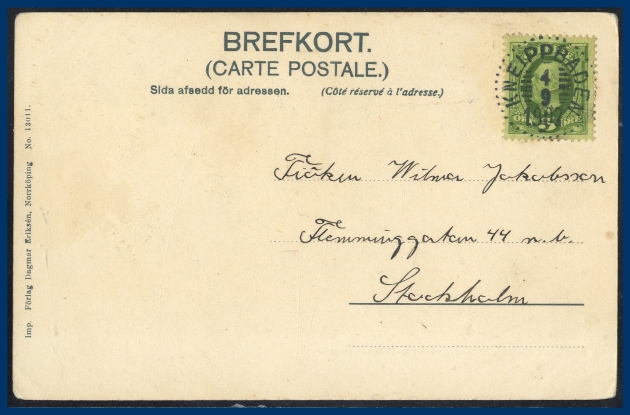 BREFKORT.
(CARTE POSTALE.)
Sida afsedd för adressen. (Côté réservé à l'adresse.)
KNEIPPBADEN
4
9
Fröken Wilma Jakobsson
Flemminggatan 44 n.b.
Stockholm
Imp. Förlag Dagmar Eriksén, Norrköping No. 13011.